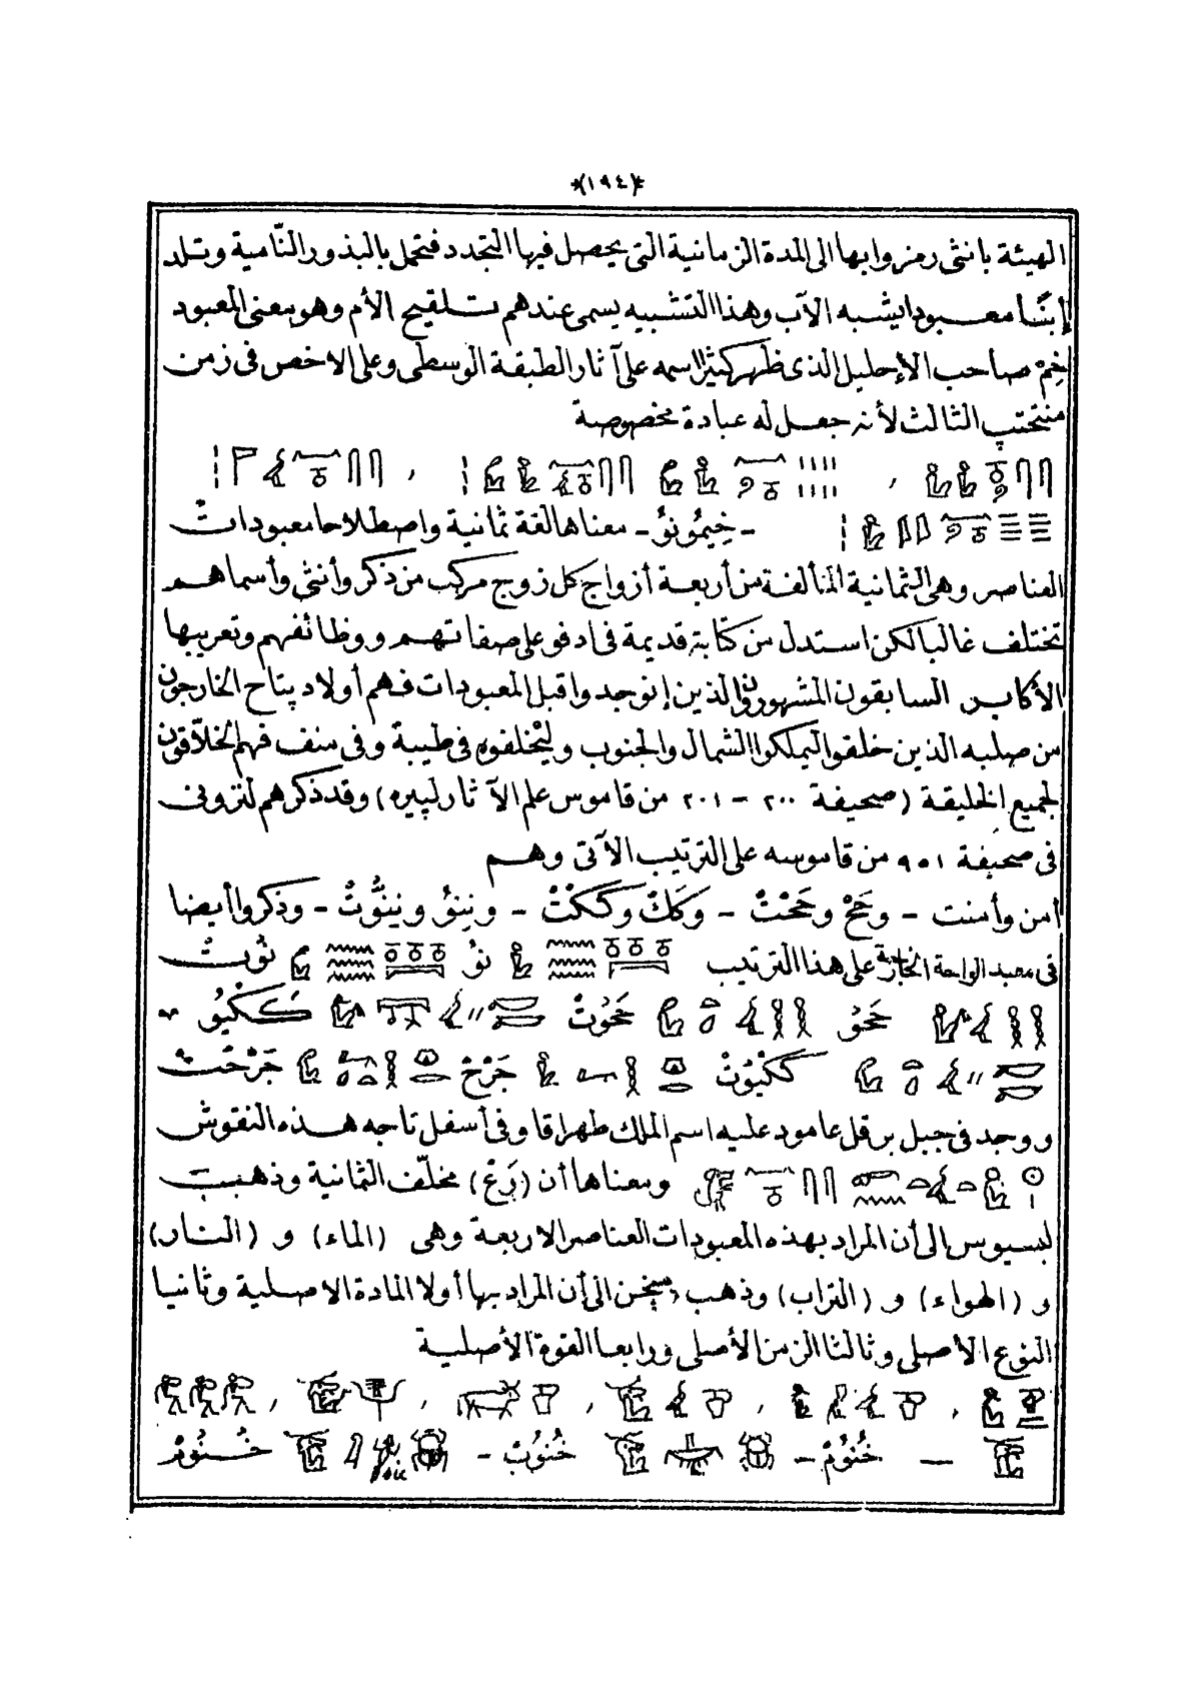 *(١٩٤)*
الهيئة بانثى رمزوا بها الى المدة الزمانية التى يحصل فيها التجدد فتحمل بالبذور النّامية وتلد
إبنًا معبودا يشبه الآب وهذا التشبيه يسمى عندهم تلقيح الأم وهو بمعنى المعبود
خِمْ صاحب الإحليل الذى ظهر كثيرا اسمه على آثار الطبقة الوسطى وعلى الاخص فى زمن
منتحتب الثالث لأنه جعل له عبادة مخصوصة
، ، 
- خِيمُونوُ - معناها لغة ثمانية واصطلاحا معبودات
العناصر وهى الثمانية المتألفة من أربعة أزواج كل زوج مركب من ذكر وأنثى وأسماهم
تختلف غالبا لكن استدل من كتابة قديمة فى ادفو على صفاتهم ووظائفهم وتعريبها
الأكابر السابقون المشهورون والذين إنوجدوا قبل المعبودات فهم أولاد پتاح الخارجون
من صلبه الذين خلقوا ليملكوا الشمال والجنوب وليخلفوه فى طيبة وفى منف فهم الخلاّقون
لجميع الخليقة (صحيفة ٢٠٠ - ٢٠١ من قاموس علم الآثار لپيره) وقد ذكرهم لنزونى
فى صحيفة ٩٥١ من قاموسه على الترتيب الآتى وهم
أمن وأمنت - وحَحْ وحَحْتْ - وكَكْ وكَكْتْ - ونِينوُ ونِينوُّتْ - وذكروا أيضا
فى معبد الواحة الخارجة على هذا الترتيب نوُ نوُيتْ
حَحوُ حَحوُتْ كَكْيوُ
كَكْيوُتْ جَرْحْ جَرْحَتْ
ووجد فى جبل برقل عامود عليه اسم الملك طهراقا وفى أسفل تاجه هذه النقوش
ومعناها أن (رَعْ) مخلّف الثمانية وذهب
لبسيوس الى أن المراد بهذه المعبودات العناصر الاربعة وهى (الماء) و (النار)
و (الهواء) و (التراب) وذهب الى أن المراد بها أولا المادة الاصلية وثانيا
النوع الاصلى وثالثا الزمن الأصلى ورابعا القوة الأصلية
، ، ، ، ،
— خْنوُمْ - خْنوُبْ - خْنوُمْ